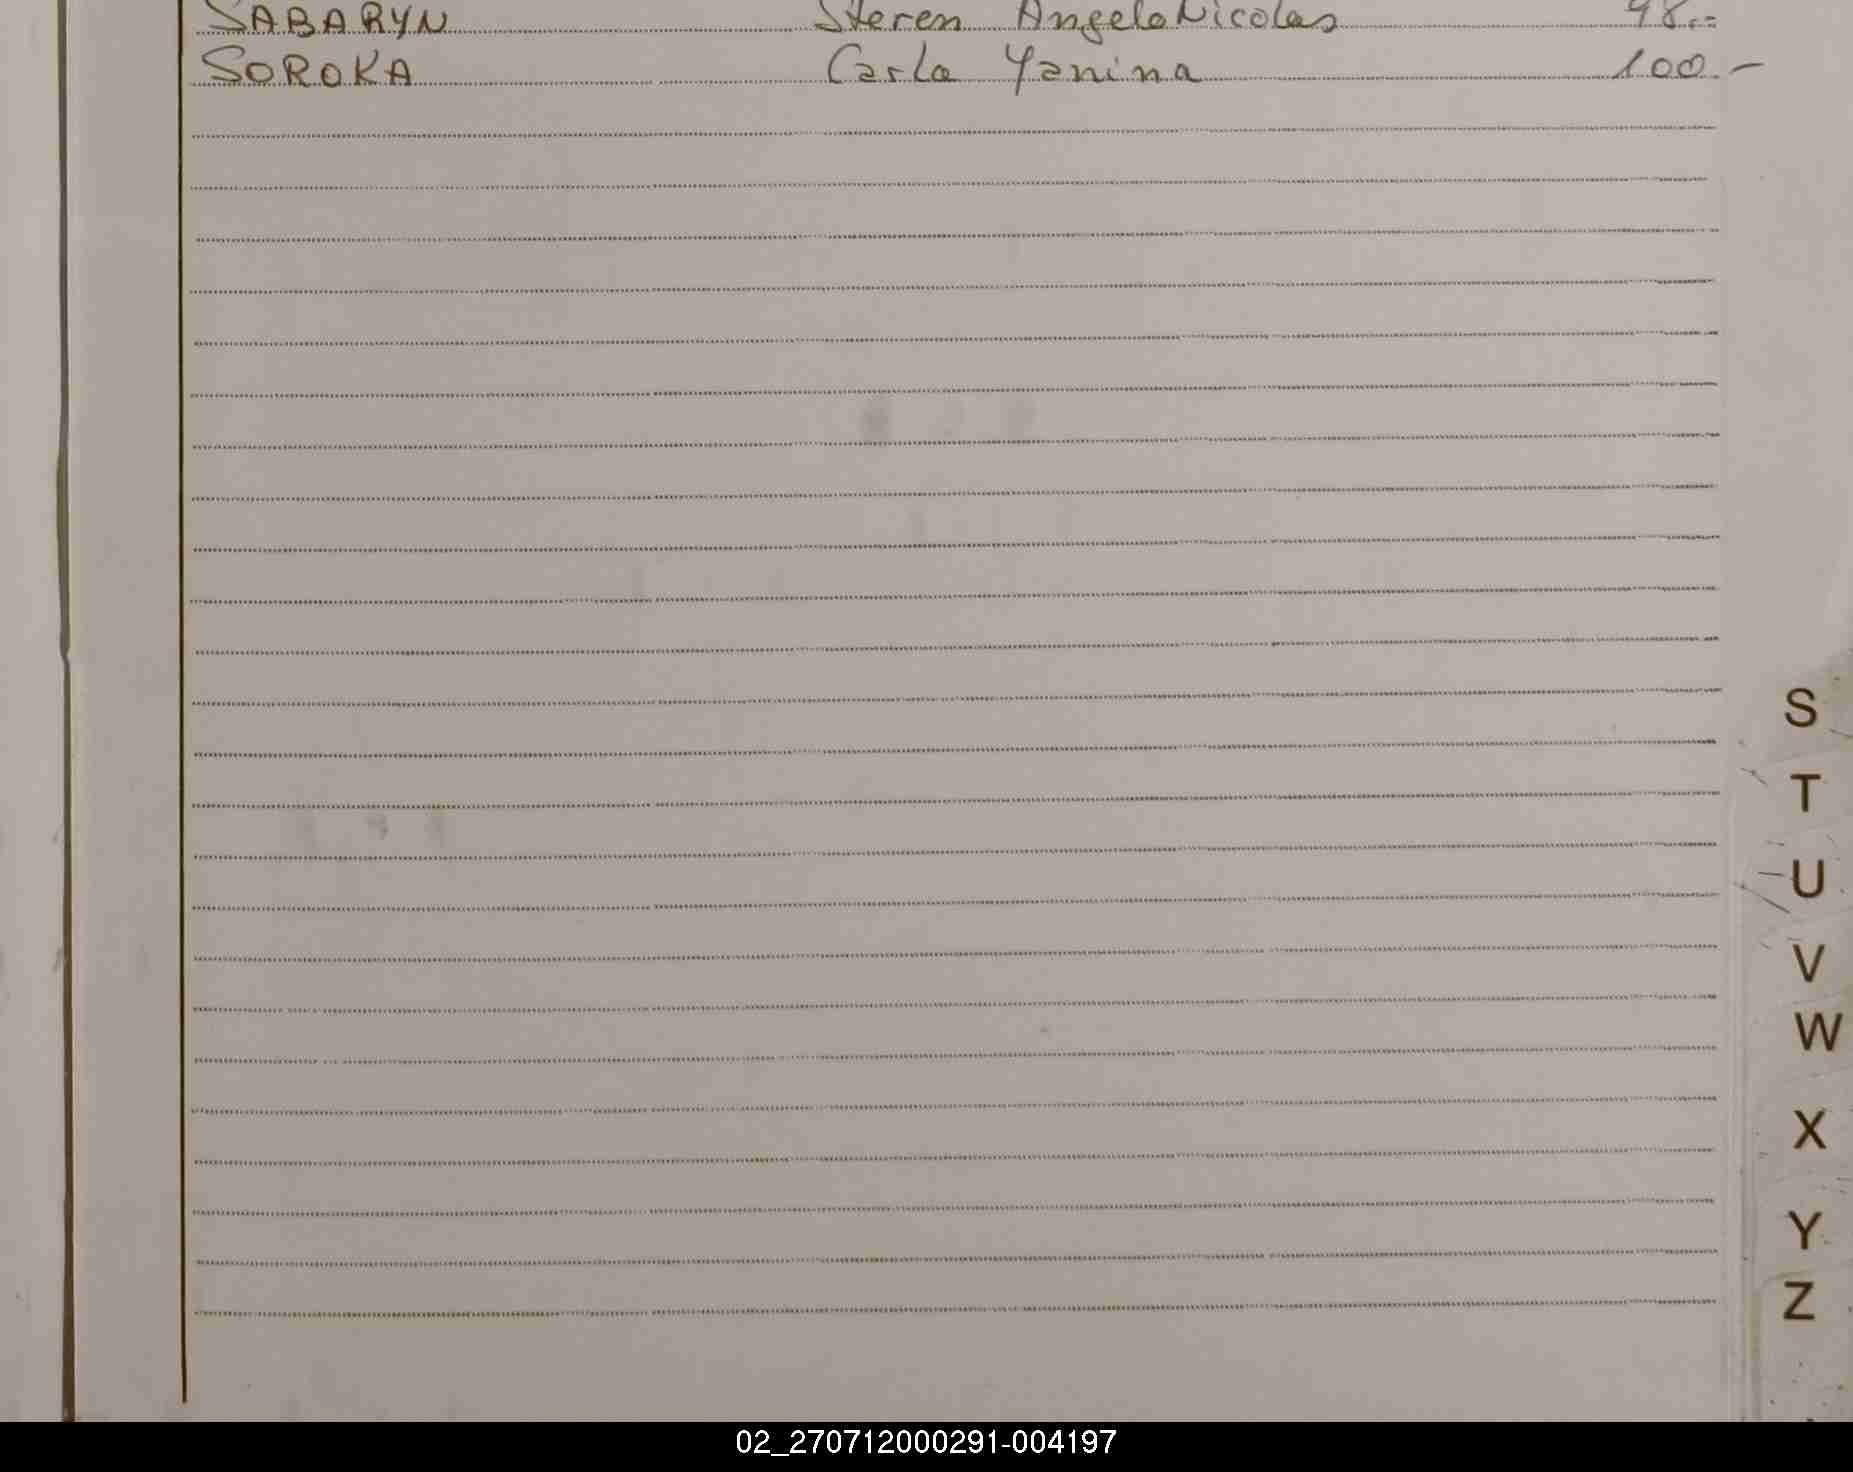 SABARYN Steren Angelo Nicolas 98.-
SOROKA Carla Yanina 100.-
S
T
U
V
W
X
Y
Z
02_270712000291-004197